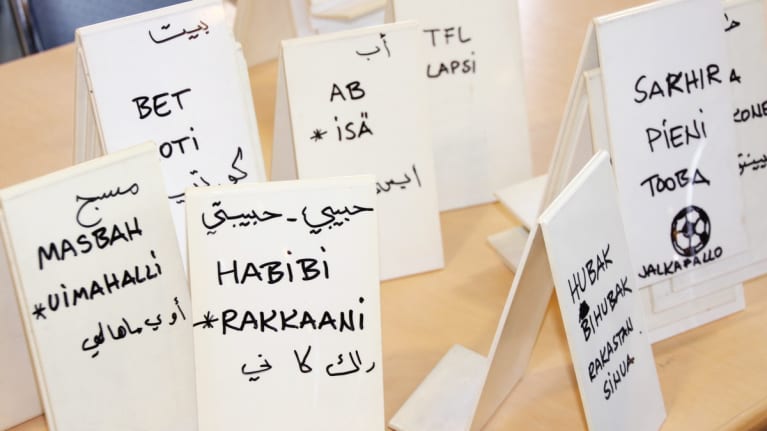 بيت
BET
OTI
كوتي
أب
AB
*ISÄ
TFL
LAPSI
SARHIR
PIENI
TOOBA
JALKAPALLO
مسبح
MASBAH
*UIMAHALLI
أوي ماهالي
حبيبي - حبيبتي
HABIBI
*RAKKAANI
راك كا ني
HUBAK
BIHUBAK
RAKASTAN
SINUA